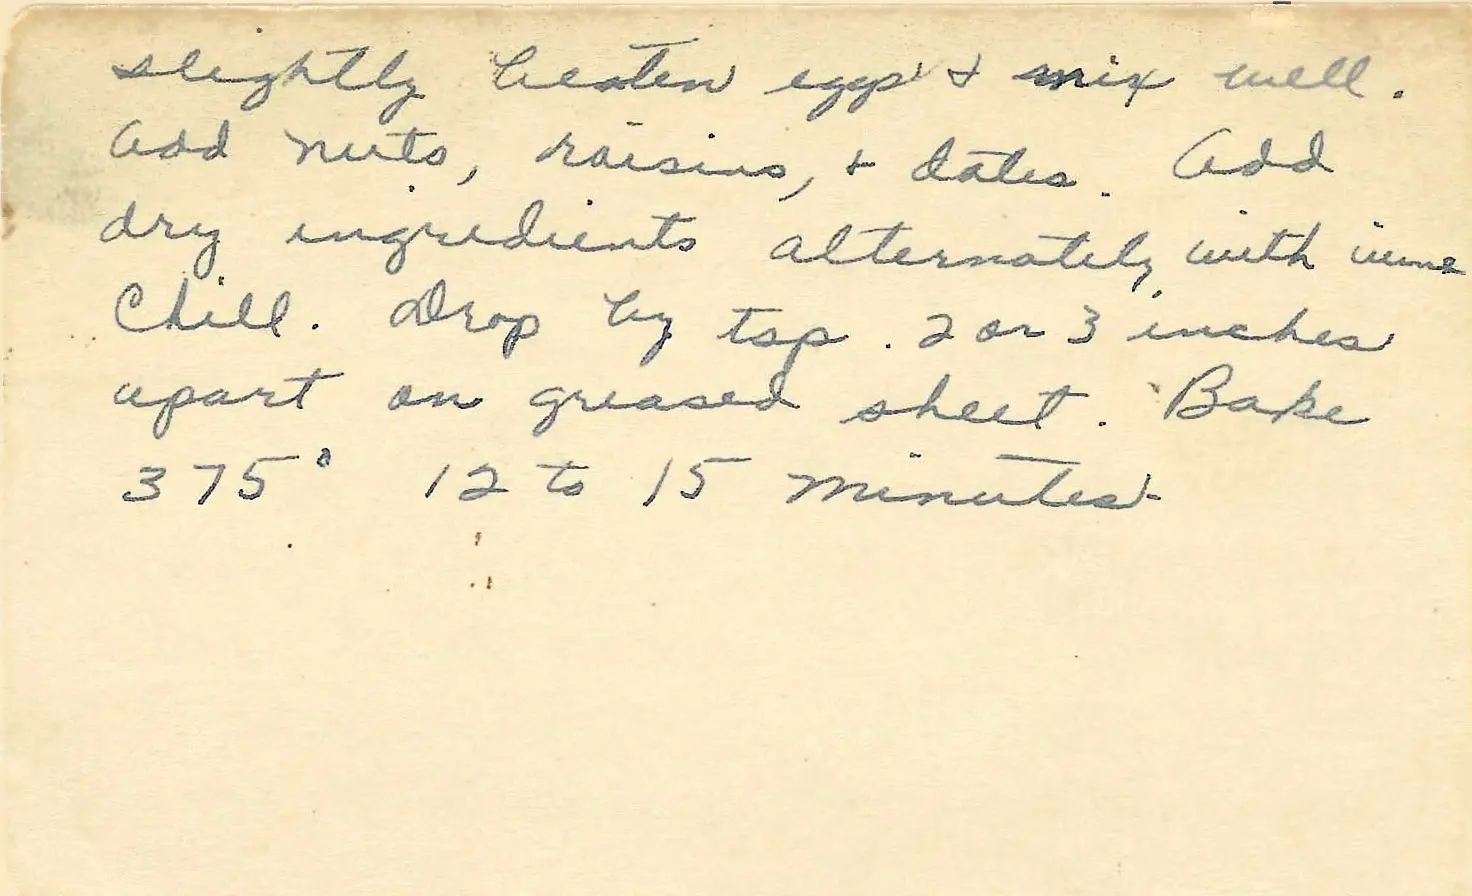 slightly beaten eggs & mix well.
Add nuts, raisins, & dates. Add
dry ingredients alternately with wine
Chill. Drop by tsp. 2 or 3 inches
apart on greased sheet. Bake
375° 12 to 15 minutes.